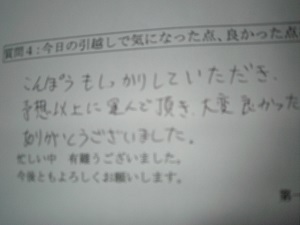 質問4:今日の引越しで気になった点、良かった点
こんぽうもしっかりしていただき、
予想以上に運んで頂き、大変良かった
ありがとうございました。
忙しい中 有難うございました。
今後ともよろしくお願いします。
第一